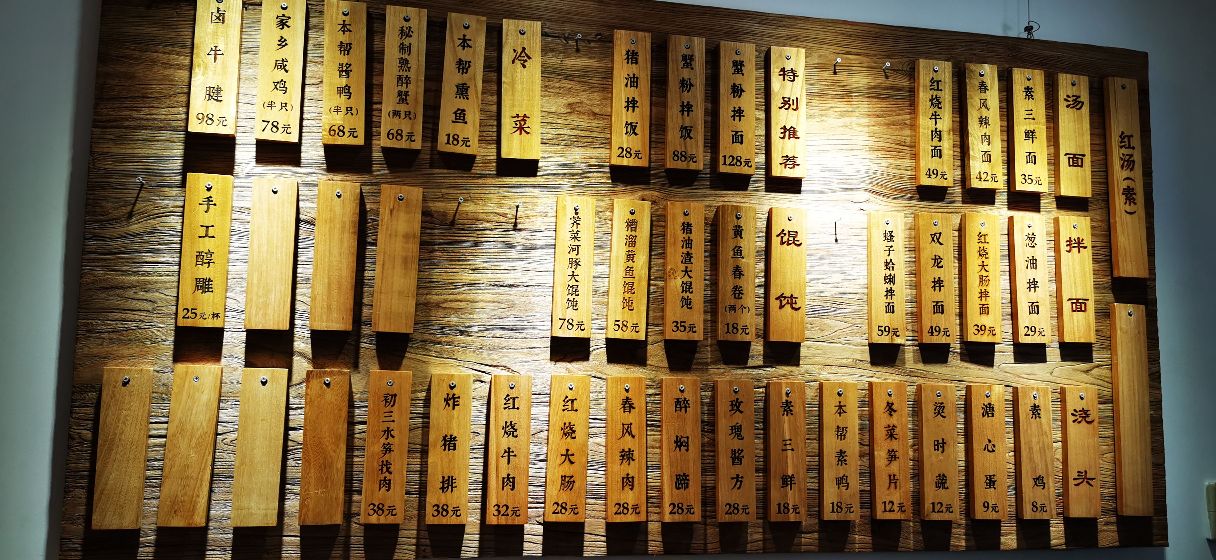 红汤(素)
汤面
素三鲜面 35元
春风辣肉面 42元
红烧牛肉面 49元
特别推荐
蟹粉拌面 128元
蟹粉拌饭 88元
猪油拌饭 28元
冷菜
本帮熏鱼 18元
秘制熟醉蟹(两只) 68元
本帮酱鸭(半只) 68元
家乡咸鸡(半只) 78元
卤牛腱 98元
拌面
葱油拌面 29元
红烧大肠拌面 39元
双龙拌面 49元
蛏子蛤蜊拌面 59元
馄饨
黄鱼春卷(两个) 18元
猪油渣大馄饨 35元
糟溜黄鱼馄饨 58元
荠菜河豚大馄饨 78元
手工醇雕 25元/杯
浇头
素鸡 8元
溏心蛋 9元
烫时蔬 12元
冬菜笋片 12元
本帮素鸭 18元
素三鲜 18元
玫瑰酱方 28元
醉焖蹄 28元
春风辣肉 28元
红烧大肠 28元
红烧牛肉 32元
炸猪排 38元
初三水笋找肉 38元